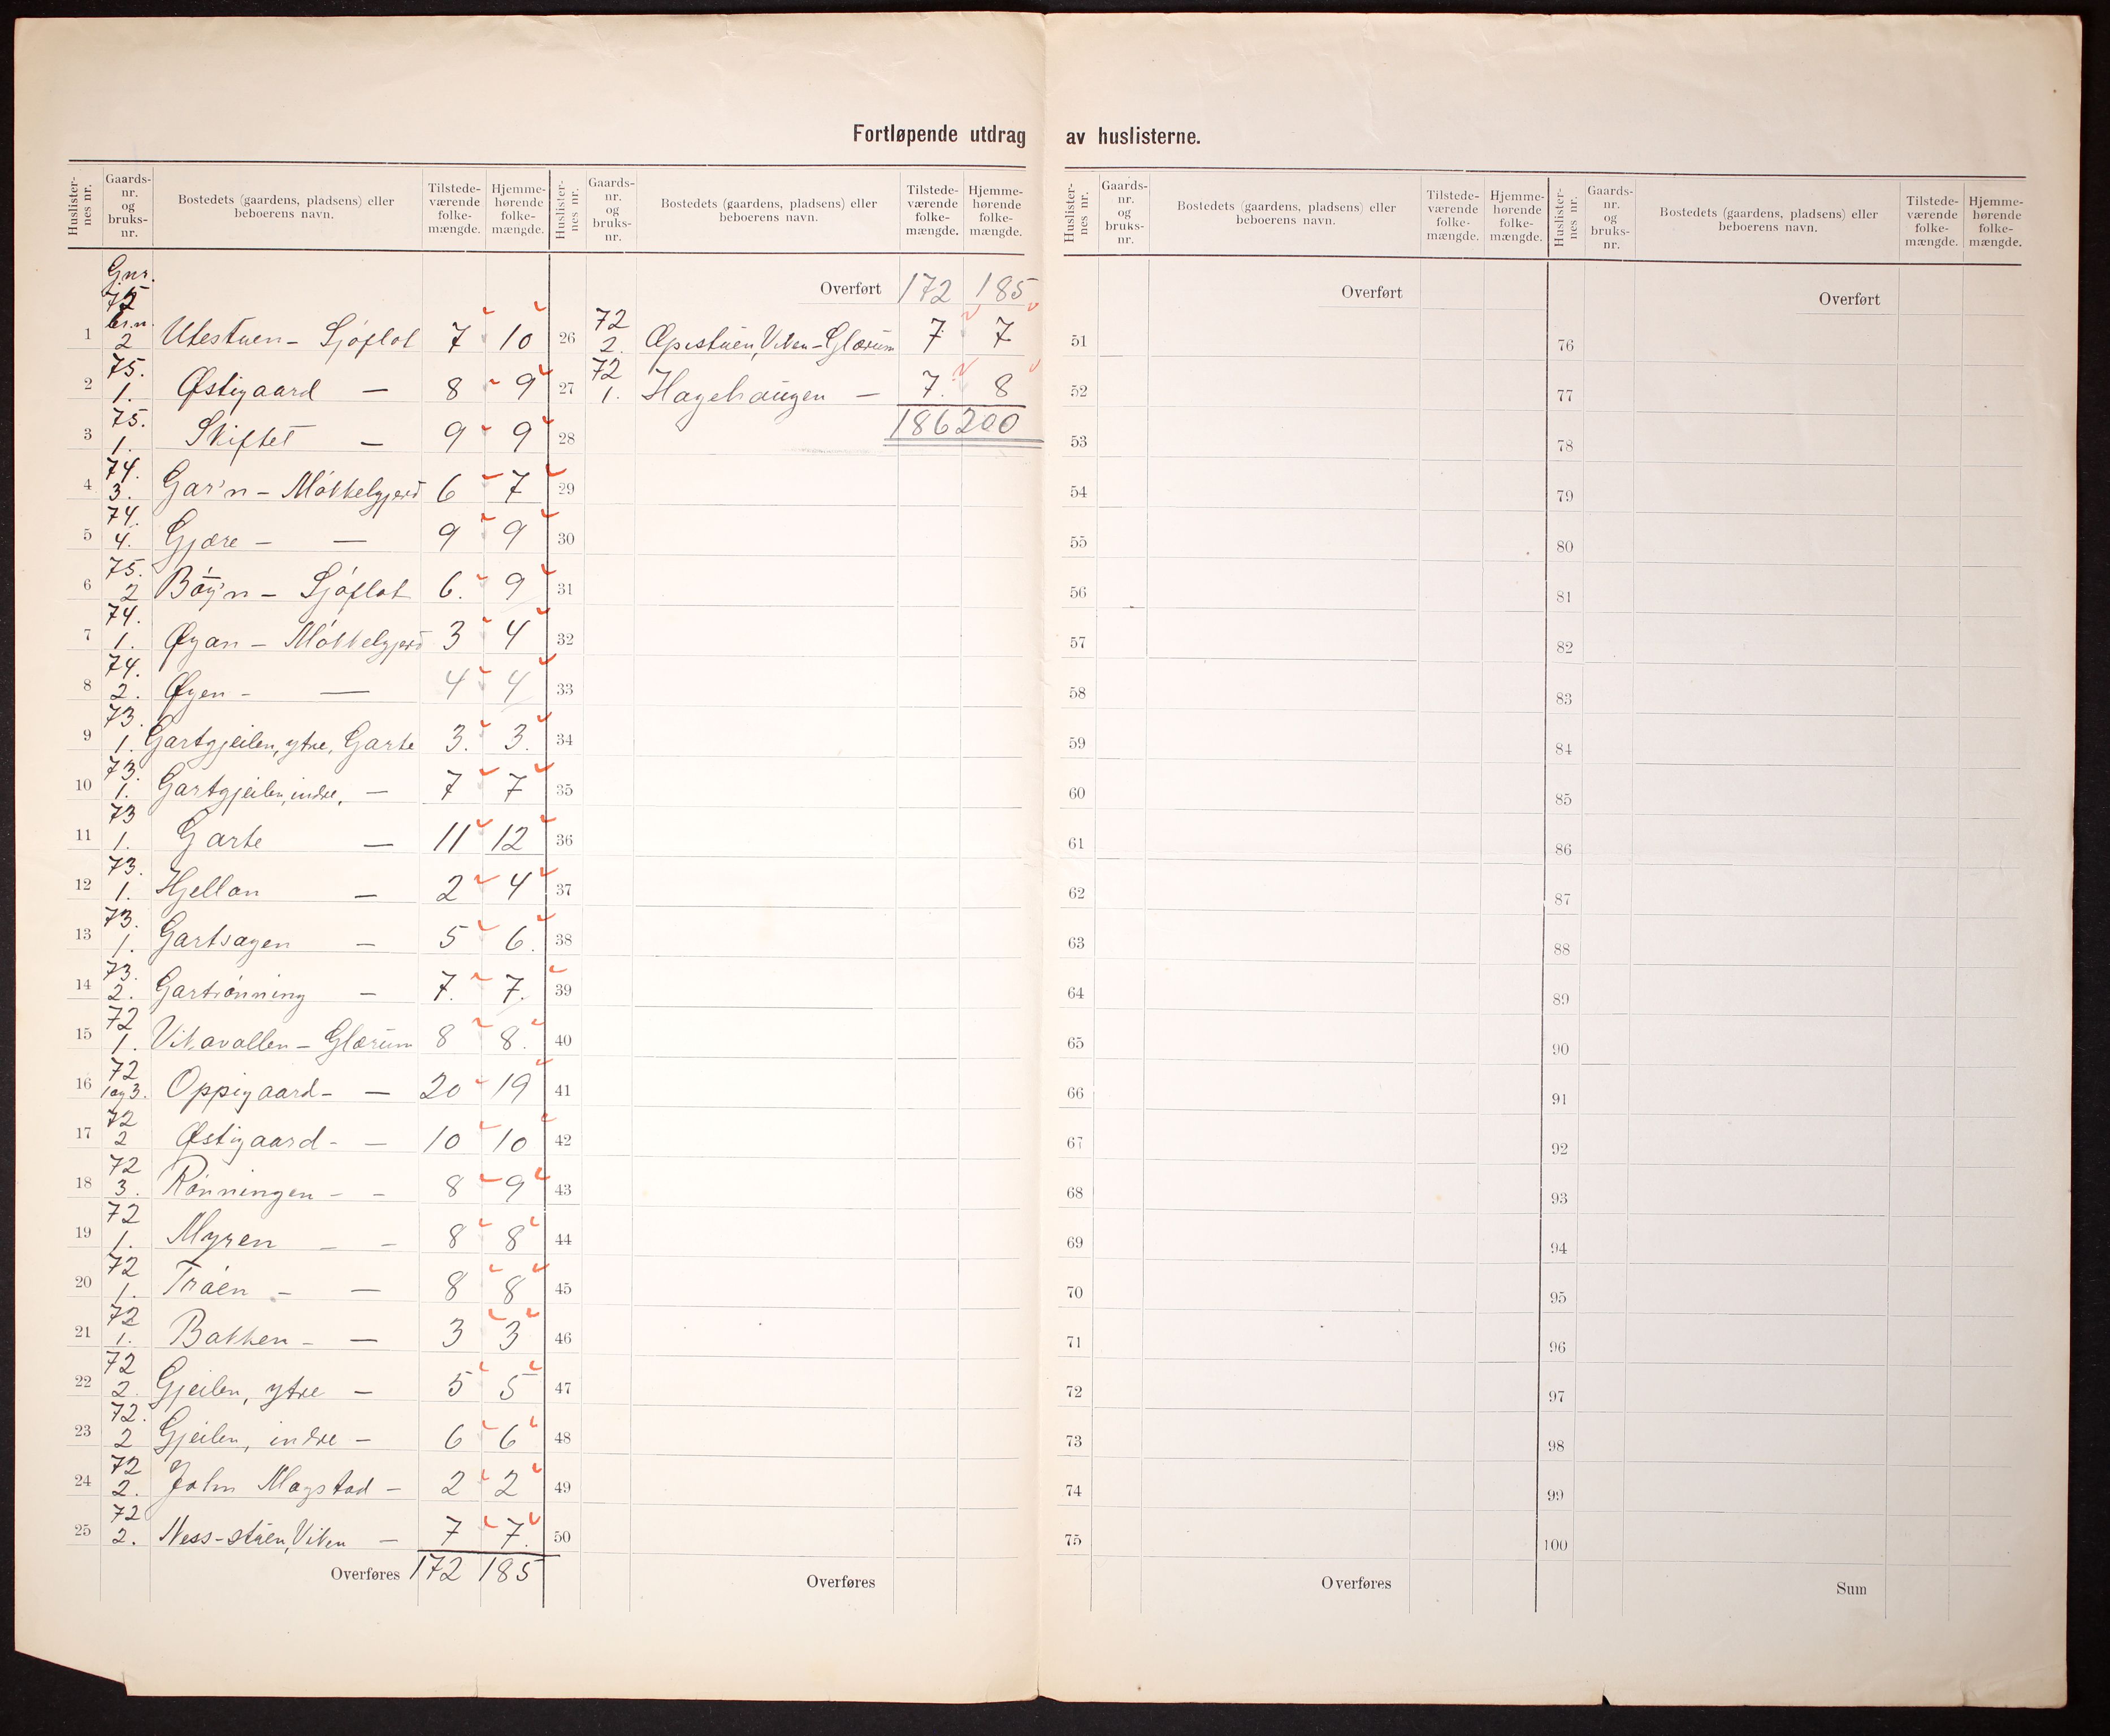 Fortløpende utdrag av huslisterne.
Huslisternes nr. Gaards-nr. og bruks-nr. Bostedets (gaardens, pladsens) eller beboerens navn. Tilstede-værende folke-mængde. Hjemme-hørende folke-mængde.
Gnr. 75 br.n.
1 2 Utestuen - Sjøflot 7 10
2 75. 1. Østigaard — 8 9
3 75. 1. Skiftet — 9 9
4 74. 3. Gar'n - Møkkelgjerd 6 7
5 74. 4. Gjøre - — 9 9
6 75. 2 Bøy'n - Sjøflot 6. 9
7 74. 1. Øyan - Møkkelgjerd 3 4
8 74. 2. Øyen - — 4 4
9 73. 1. Gartgjeilen, ytre, Garte 3. 3.
10 73. 1. Gartgjeilen, indre, — 7 7
11 73 1. Garte — 11 12
12 73. 1. Hjellan — 2 4
13 73. 1. Gartsagen — 5 6.
14 73. 2. Gartrønning — 7. 7.
15 72 1. Vikavollen - Glærum 8 8.
16 72 1 og 3. Oppigaard - — 20 19
17 72 2 Østigaard - — 10 10
18 72 3. Rønningen - - 8 9
19 72 1. Myren - - 8 8
20 72 1. Trøen - — 8 8
21 72 1. Bakken - — 3 3
22 72 2. Gjeilen, ytre — 5 5
23 72. 2 Gjeilen, indre - 6 6
24 72 2. John Magstad - 2 2
25 72 2. Ness-støen, Viken — 7 7.
Overføres 172 185
Huslisternes nr. Gaards-nr. og bruks-nr. Bostedets (gaardens, pladsens) eller beboerens navn. Tilstede-værende folke-mængde. Hjemme-hørende folke-mængde.
Overført 172 185
26 72 2. Øpistuen, Viken - Glærum 7. 7
27 72 1. Hagehaugen — 7. 8
28 186 200
29
30
31
32
33
34
35
36
37
38
39
40
41
42
43
44
45
46
47
48
49
50
Overføres
Huslisternes nr. Gaards-nr. og bruks-nr. Bostedets (gaardens, pladsens) eller beboerens navn. Tilstede-værende folke-mængde. Hjemme-hørende folke-mængde.
Overført
51
52
53
54
55
56
57
58
59
60
61
62
63
64
65
66
67
68
69
70
71
72
73
74
75
Overføres
Huslisternes nr. Gaards-nr. og bruks-nr. Bostedets (gaardens, pladsens) eller beboerens navn. Tilstede-værende folke-mængde. Hjemme-hørende folke-mængde.
Overført
76
77
78
79
80
81
82
83
84
85
86
87
88
89
90
91
92
93
94
95
96
97
98
99
100
Sum